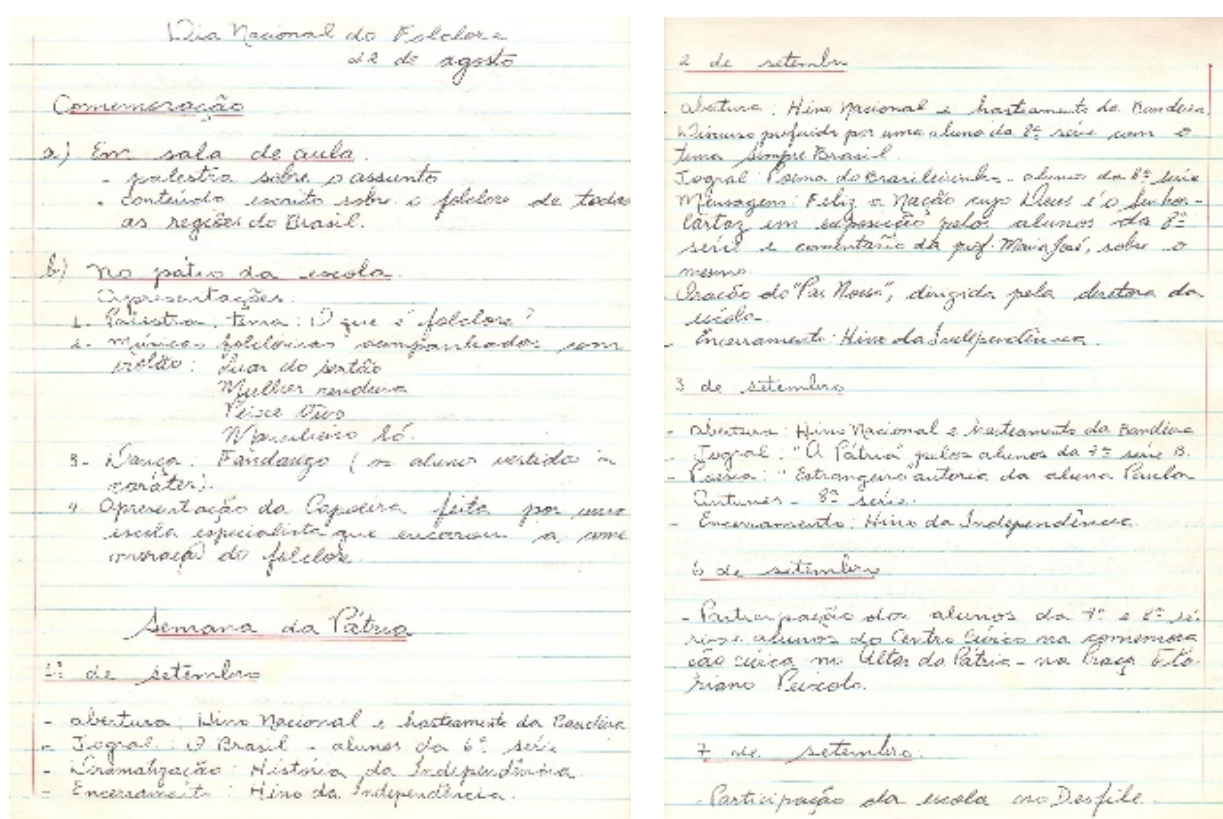 Dia Nacional do Folclore
22 de agosto
Comemoração
a) Em sala de aula.
- palestra sobre o assunto
- conteúdo escrito sobre o folclore de todas
as regiões do Brasil.
b) No pátio da escola.
Apresentações.
1. Palestra, tema: O que é folclore?
2. músicas folclóricas acompanhadas com
violão: Luar do sertão
Mulher rendeira
Peixe Vivo
Marinheiro Só.
3- Dança: Fandango (os aluno vestido a
caráter).
4. Apresentação da Capoeira feita por uma
escola especialista que encerrou a come
moração do folclore.
Semana da Pátria
1º de setembro
- abertura: Hino Nacional e hasteamento da Bandeira
- Jogral: O Brasil - alunos da 6ª série
- Dramatização: História da Independência
- Encerramento: Hino da Independência.
2 de setembro
abertura: Hino Nacional e hasteamento da Bandeira
Discurso proferido por uma aluna da 8ª série com o
tema Sempre Brasil
Jogral: Poema do Brasileirinho - alunos da 8ª série
Mensagem: Feliz a Nação cujo Deus é o Senhor -
Cartaz em exposição pelos alunos da 8ª
série e comentário da prof. Maria José, sobre o
mesmo.
Oração do "Pai Nosso", dirigida pela diretora da
escola.
- Encerramento: Hino da Independência.
3 de setembro
- abertura: Hino Nacional e hasteamento da Bandeira
- Jogral: "A Pátria" pelos alunos da 7ª série B.
- Poesia: "Estrangeiro" autoria da aluna Paula
Antunes - 8ª série.
- Encerramento: Hino da Independência.
6 de setembro
- Participação dos alunos da 7ª e 8ª sé
ries e alunos do Centro Cívico na comemora
ção cívica no Altar da Pátria - na Praça Flo
riano Peixoto.
7 de setembro.
- Participação da escola no Desfile.